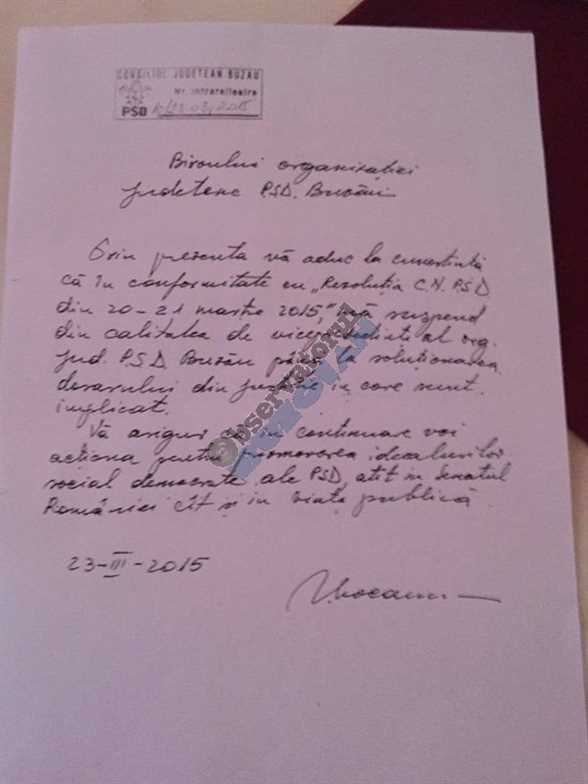 CONSILIUL JUDETEAN BUZAU
Nr. intrare/iesire
PSD
Biroului organizației
județene P.S.D. Buzău
Prin prezenta vă aduc la cunostintă
că în conformitate cu „Rezoluția C.N. P.S.D.
din 20-21 martie 2015," mă suspend
din calitatea de vicepreședinte al org.
jud. P.S.D. Buzău până la soluționarea
dosarului din justiție in care sunt
implicat.
Vă asigur că in continuare voi
acționa pentru promovarea idealurilor
social democrate ale PSD, atît in Senatul
României cît și in viața publică.
23-III-2015
Observatorul
BUZOIAN